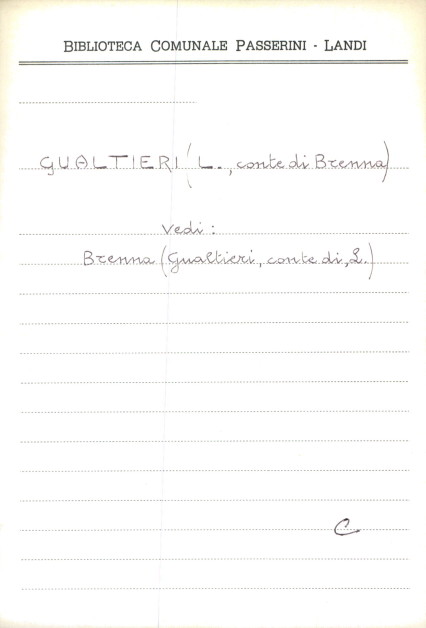 BIBLIOTECA COMUNALE PASSERINI - LANDI
GUALTIERI (L., conte di Brenna)
Vedi :
Brenna (Gualtieri, conte di, L.)
C